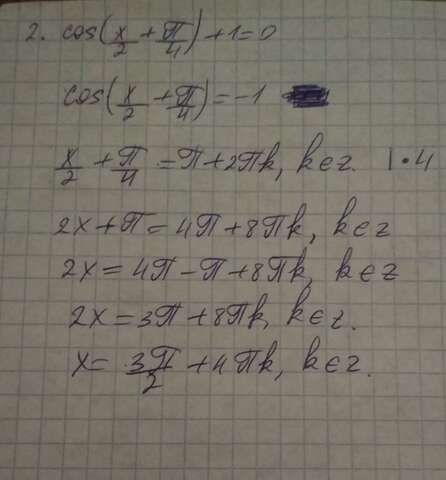 2. cos(x/2 + π/4) + 1 = 0
cos(x/2 + π/4) = -1
x/2 + π/4 = π + 2πk, k∈z. | · 4
2x + π = 4π + 8πk, k∈z
2x = 4π - π + 8πk, k∈z
2x = 3π + 8πk, k∈z.
x = 3π/2 + 4πk, k∈z.